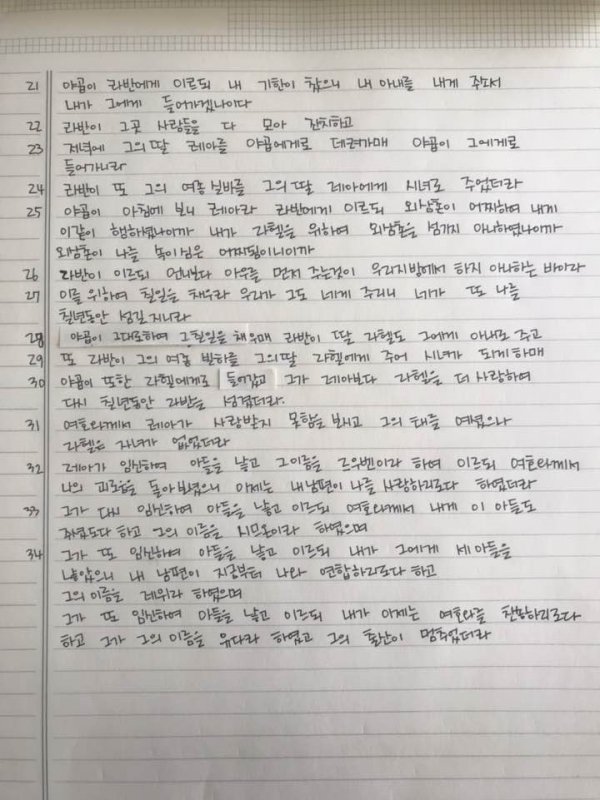 21 야곱이 라반에게 이르되 내 기한이 찼으니 내 아내를 내게 주소서
내가 그에게 들어가겠나이다
22 라반이 그곳 사람들을 다 모아 잔치하고
23 저녁에 그의 딸 레아를 야곱에게로 데려가매 야곱이 그에게로
들어가니라
24 라반이 또 그의 여종 실바를 그의 딸 레아에게 시녀로 주었더라
25 야곱이 아침에 보니 레아라 라반에게 이르되 외삼촌이 어찌하여 내게
이같이 행하셨나이까 내가 라헬을 위하여 외삼촌을 섬기지 아니하였나이까
외삼촌이 나를 속이심은 어찌됨이니이까
26 라반이 이르되 언니보다 아우를 먼저 주는것이 우리지방에서 하지 아니하는 바이라
27 이를 위하여 칠일을 채우라 우리가 그도 네게 주리니 네가 또 나를
칠년동안 섬길지니라
28 야곱이 그대로하여 그칠일을 채우매 라반이 딸 라헬도 그에게 아내로 주고
29 또 라반이 그의 여종 빌하를 그의딸 라헬에게 주어 시녀가 되게하매
30 야곱이 또한 라헬에게로 들어갔고 그가 레아보다 라헬을 더 사랑하여
다시 칠년동안 라반을 섬겼더라.
31 여호와께서 레아가 사랑받지 못함을 보시고 그의 태를 여셨으나
라헬은 자녀가 없었더라
32 레아가 임신하여 아들을 낳고 그이름을 르우벤이라 하여 이르되 여호와께서
나의 괴로움을 돌아보셨으니 이제는 내남편이 나를 사랑하리로다 하였더라
33 그가 다시 임신하여 아들을 낳고 이르되 여호와께서 내게 이 아들도
주셨도다 하고 그의 이름을 시므온이라 하였으며
34 그가 또 임신하여 아들을 낳고 이르되 내가 그에게 세아들을
낳았으니 내 남편이 지금부터 나와 연합하리로다 하고
그의이름을 레위라 하였으며
그가 또 임신하여 아들을 낳고 이르되 내가 이제는 여호와를 찬송하리로다
하고 그가 그의이름을 유다라 하였고 그의 출산이 멈추었더라